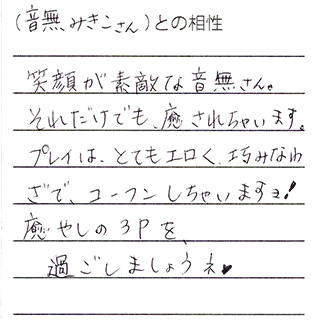 (音無みきこさん)との相性
笑顔が素敵な音無さん。
それだけでも、癒されちゃいます。
プレイは、とてもエロく、巧みなわ
ざで、コーフンしちゃいますヨ!
癒やしの3Pを、
過ごしましょうネ♥